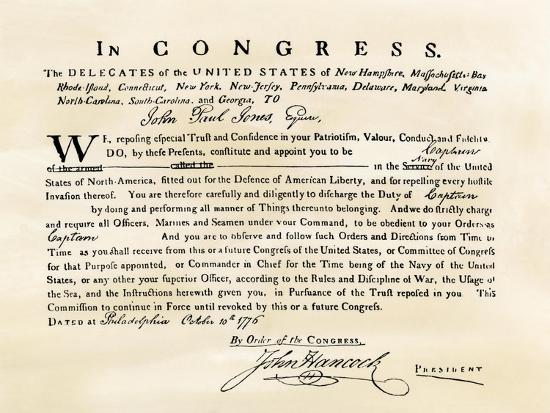 IN CONGRESS.
The DELEGATES of the UNITED STATES of New Hampshire, Massachusetts-Bay
Rhode-Island, Connecticut, New York, New-Jersey, Pennsylvania, Delaware, Maryland, Virginia
North-Carolina, South-Carolina, and Georgia, TO
John Paul Jones, Esquire,
WE, reposing especial Trust and Confidence in your Patriotism, Valour, Conduct, and Fidelity
DO, by these Presents, constitute and appoint you to be Captain
Navy
of the armed called the in the Service of the United
States of North-America, fitted out for the Defence of American Liberty, and for repelling every hostile
Invasion thereof. You are therefore carefully and diligently to discharge the Duty of Captain
by doing and performing all manner of Things thereunto belonging. And we do strictly charge
and require all Officers, Marines and Seamen under your Command, to be obedient to your Orders as
Captain And you are to observe and follow such Orders and Directions from Time to
Time as you shall receive from this or a future Congress of the United States, or Committee of Congress
for that Purpose appointed, or Commander in Chief for the Time being of the Navy of the United
States, or any other your superior Officer, according to the Rules and Discipline of War, the Usage of
the Sea, and the Instructions herewith given you, in Pursuance of the Trust reposed in you. This
Commission to continue in Force until revoked by this or a future Congress.
DATED at Philadelphia October 10th 1776
By Order of the CONGRESS,
John Hancock PRESIDENT